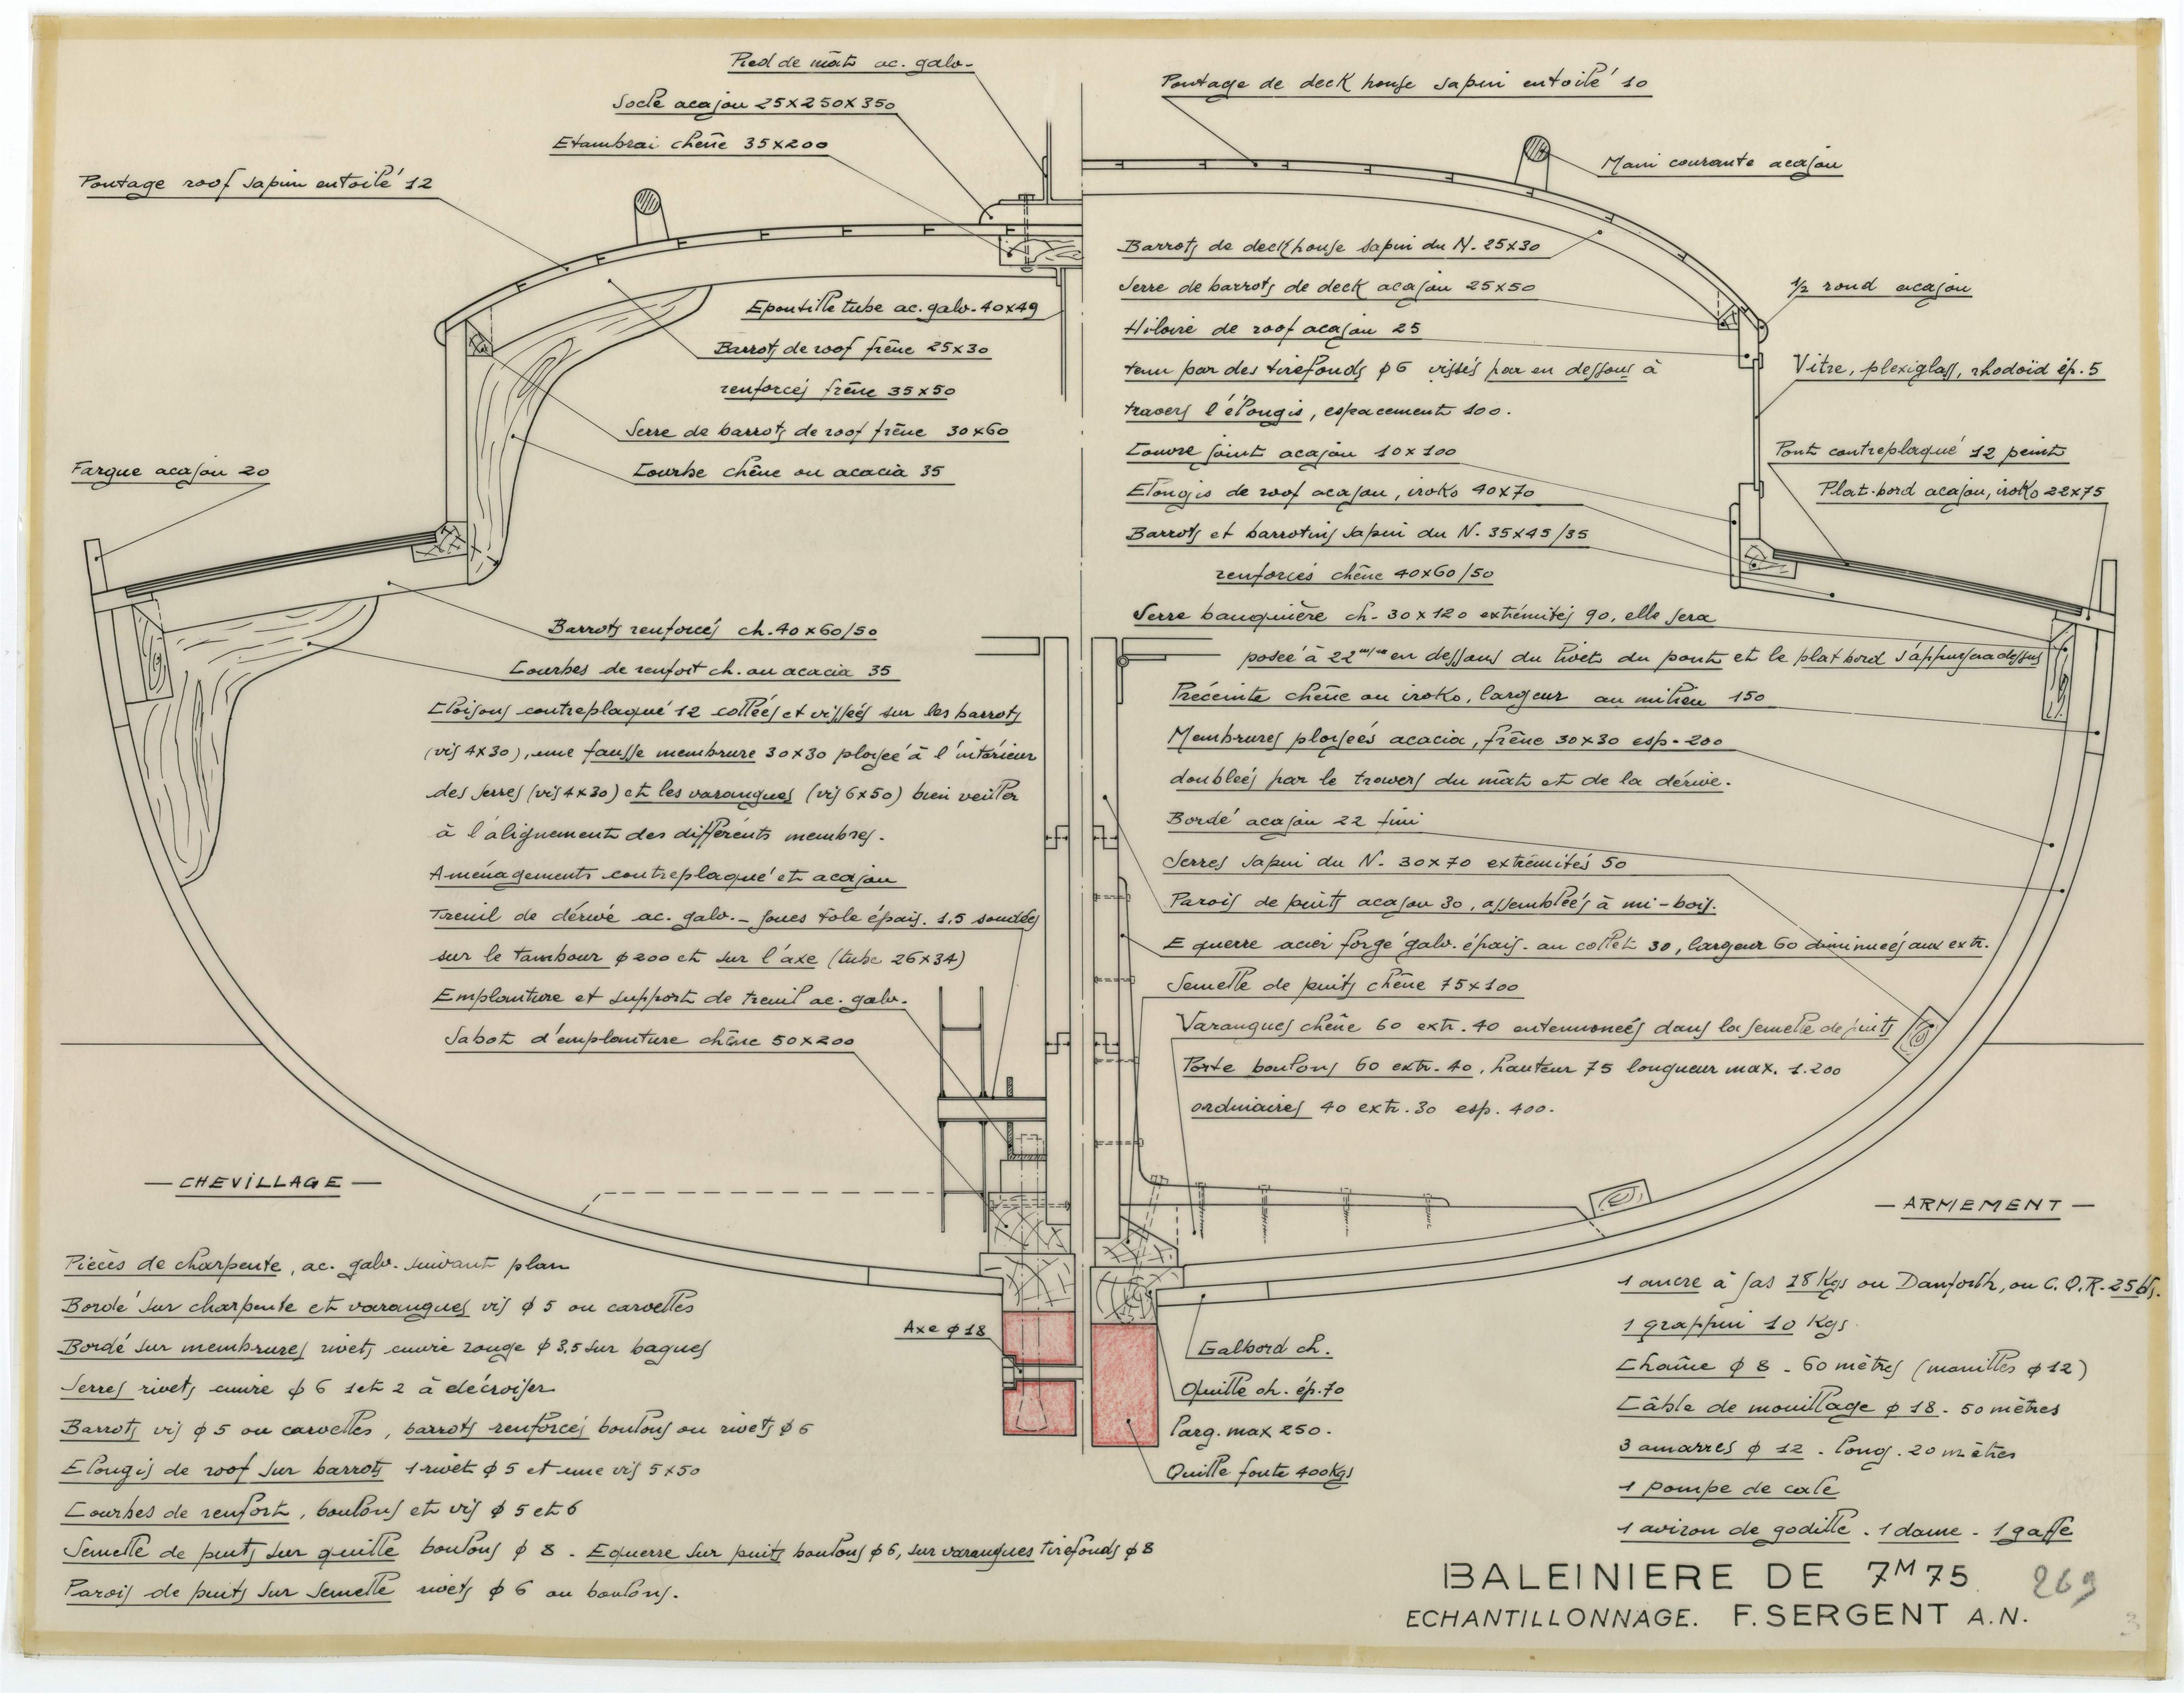 Pied de mât ac. galv.
Socle acajou 25x250x350
Etambrai chêne 35x200
Pontage roof sapin entoilé 12
Pontage de deck house sapin entoilé 10
Main courante acajou
Barrots de deckhouse sapin du N. 25x30
Serre de barrots de deck acajou 25x50
Hiloire de roof acajou 25
tenu par des tirefonds φ6 vissés par en dessous à
travers l'élongis, espacement 100.
Couvre joint acajou 10x100
Elongis de roof acajou, iroko 40x70
Barrots et barrotins sapin du N. 35x45/35
renforcés chêne 40x60/50
Serre bauquière ch. 30x120 extrémités 90, elle sera
posée à 22 m/m en dessous du livet du pont et le plat bord s'appuyera dessus
Préceinte chêne ou iroko, largeur au milieu 150
Membrures ployées acacia, frêne 30x30 esp. 200
doublées par le travers du mât et de la dérive.
Bordé acajou 22 fini
Serres sapin du N. 30x70 extrémités 50
Parois de puits acajou 30, assemblées à mi-bois.
Equerre acier forgé galv. épais. au collet 30, largeur 60 diminuées aux extr.
Semelle de puits chêne 75x100
Varangues chêne 60 extr. 40 entenonnées dans la semelle de puits
Porte boulons 60 extr. 40, hauteur 75 longueur max. 1.200
ordinaires 40 extr. 30 esp. 400.
1/2 rond acajou
Vitre, plexiglass, rhodoïd ép. 5
Pont contreplaqué 12 peint
Plat-bord acajou, iroko 22x75
Epontille tube ac. galv. 40x49
Barrots de roof frêne 25x30
renforcés frêne 35x50
Serre de barrots de roof frêne 30x60
Courbe chêne ou acacia 35
Fargue acajou 20
Barrots renforcés ch. 40x60/50
Courbes de renfort ch. ou acacia 35
Cloisons contreplaqué 12 collées et vissées sur les barrots
(vis 4x30), une fausse membrure 30x30 ployée à l'intérieur
des serres (vis 4x30) et les varangues (vis 6x50) bien veiller
à l'alignement des différents membres.
Aménagements contreplaqué et acajou
Treuil de dérive ac. galv. - joues tole épais. 1,5 soudées
sur le tambour φ200 et sur l'axe (tube 26x34)
Emplanture et support de treuil ac. galv.
Sabot d'emplanture chêne 50x200
- CHEVILLAGE -
Pièces de charpente, ac. galv. suivant plan
Bordé sur charpente et varangues vis φ 5 ou carvelles
Bordé sur membrures rivets cuivre rouge φ 3,5 sur bagues
Serres rivets cuivre φ 6 1 et 2 à décroiser
Barrots vis φ 5 ou carvelles, barrots renforcés boulons ou rivets φ 6
Elongis de roof sur barrots 1 rivet φ 5 et une vis 5x50
Courbes de renfort, boulons et vis φ 5 et 6
Semelle de puits sur quille boulons φ 8 - Equerre sur puits boulons φ6, sur varangues tirefonds φ8
Parois de puits sur semelle rivets φ 6 ou boulons.
Axe φ18
Galbord ch.
Quille ch. ép. 70
Larg. max 250.
Quille fonte 400Kgs
- ARMEMENT -
1 ancre à jas 18 Kgs ou Danforth, ou C.Q.R. 25 lbs.
1 grappin 10 Kgs
Chaîne φ 8 - 60 mètres (manilles φ12)
Câble de mouillage φ 18 - 50 mètres
3 amarres φ 12 - Long. 20 mètres
1 pompe de cale
1 aviron de godille - 1 dame - 1 gaffe
BALEINIERE DE 7M75
269
ECHANTILLONNAGE. F. SERGENT A.N.
3